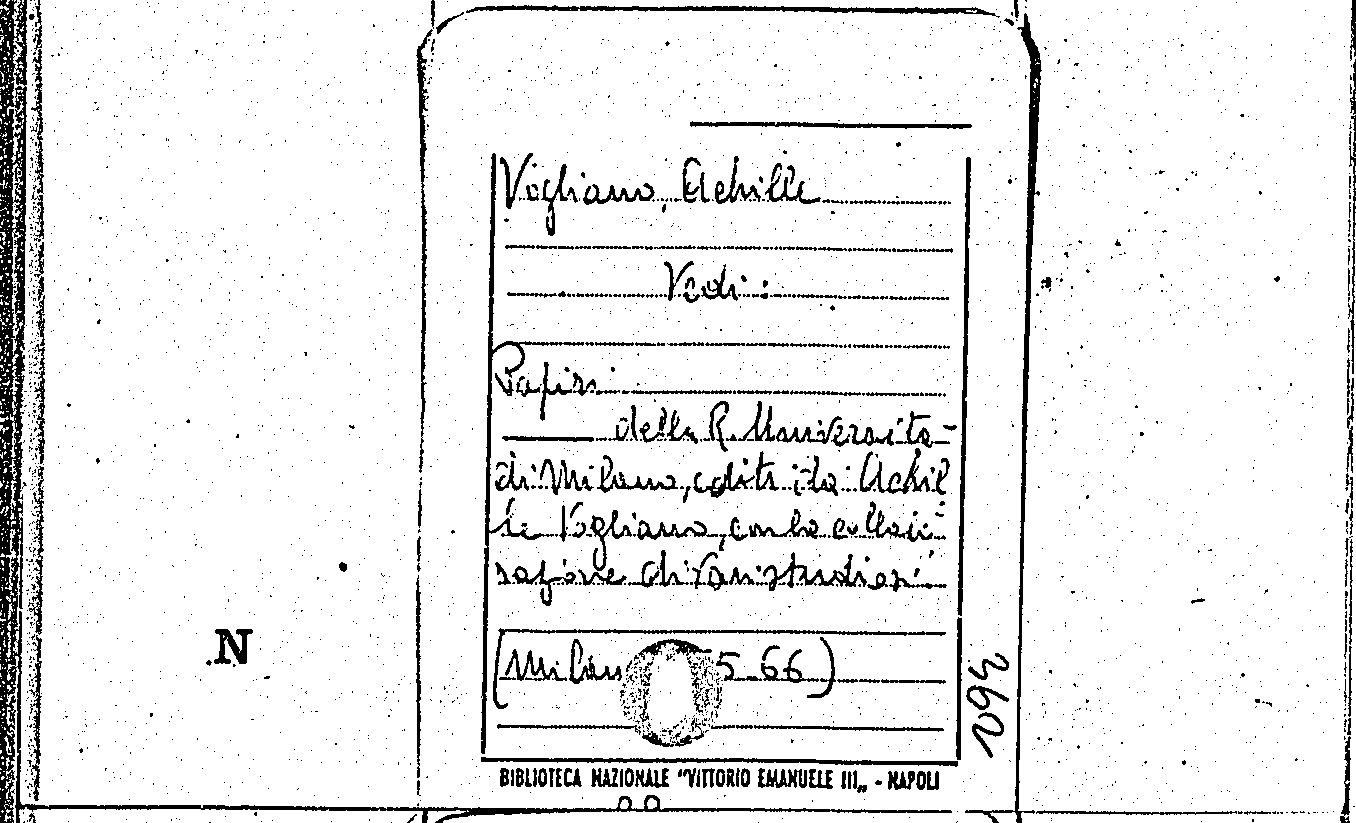 Vogliano, Achille
Vedi:
Papiri
della R. Università
di Milano, editi da Achil
le Vogliano, con la collabo
razione di vari studiosi.
(Milan 5-66)
N
BIBLIOTECA NAZIONALE "VITTORIO EMANUELE III„ - NAPOLI